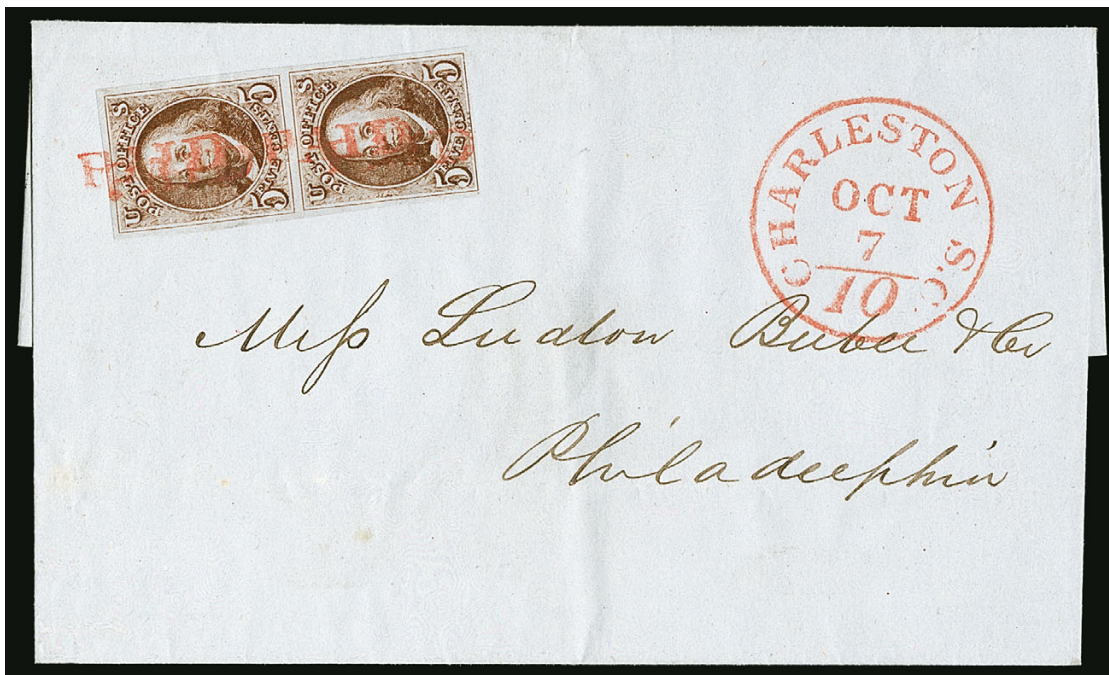 U S
POST OFFICE
5 5
FIVE CENTS
U S
POST OFFICE
5 5
FIVE CENTS
CHARLESTON S.C.
OCT
7
10
Mess Ludlow Buber & Co
Philadelphia